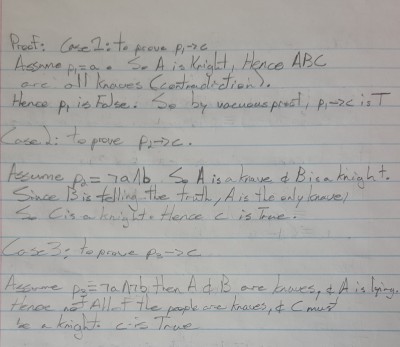 Proof: Case 1: to prove p₁→c
Assume p₁=a. So A is Knight, Hence ABC
are all knaves (contradiction).
Hence p₁ is False. So by vacuous proof, p₁→c is T
Case 2: to prove p₂→c.
Assume p₂=¬a∧b So A is a knave & B is a knight.
Since B is telling the truth, A is the only knave,
So C is a knight. Hence c is True.
Case 3: to prove p₃→c
Assume p₃=¬a∧¬b then A & B are knaves, & A is lying.
Hence not All of the people are knaves, & C must
be a knight. c is True